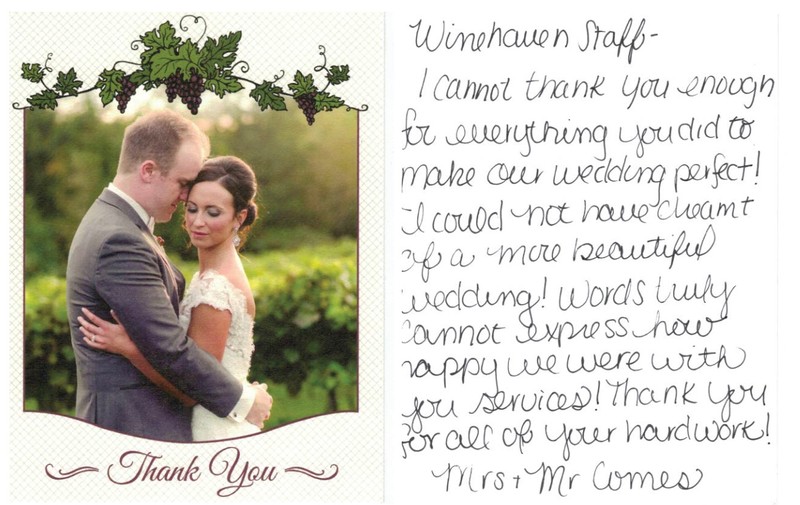 Thank You
Winehaven Staff-
I cannot thank you enough
for everything you did to
make our wedding perfect!
I could not have dreamt
of a more beautiful
wedding! Words truly
cannot express how
happy we were with
you services! Thank you
for all of your hardwork!
Mrs + Mr Comes